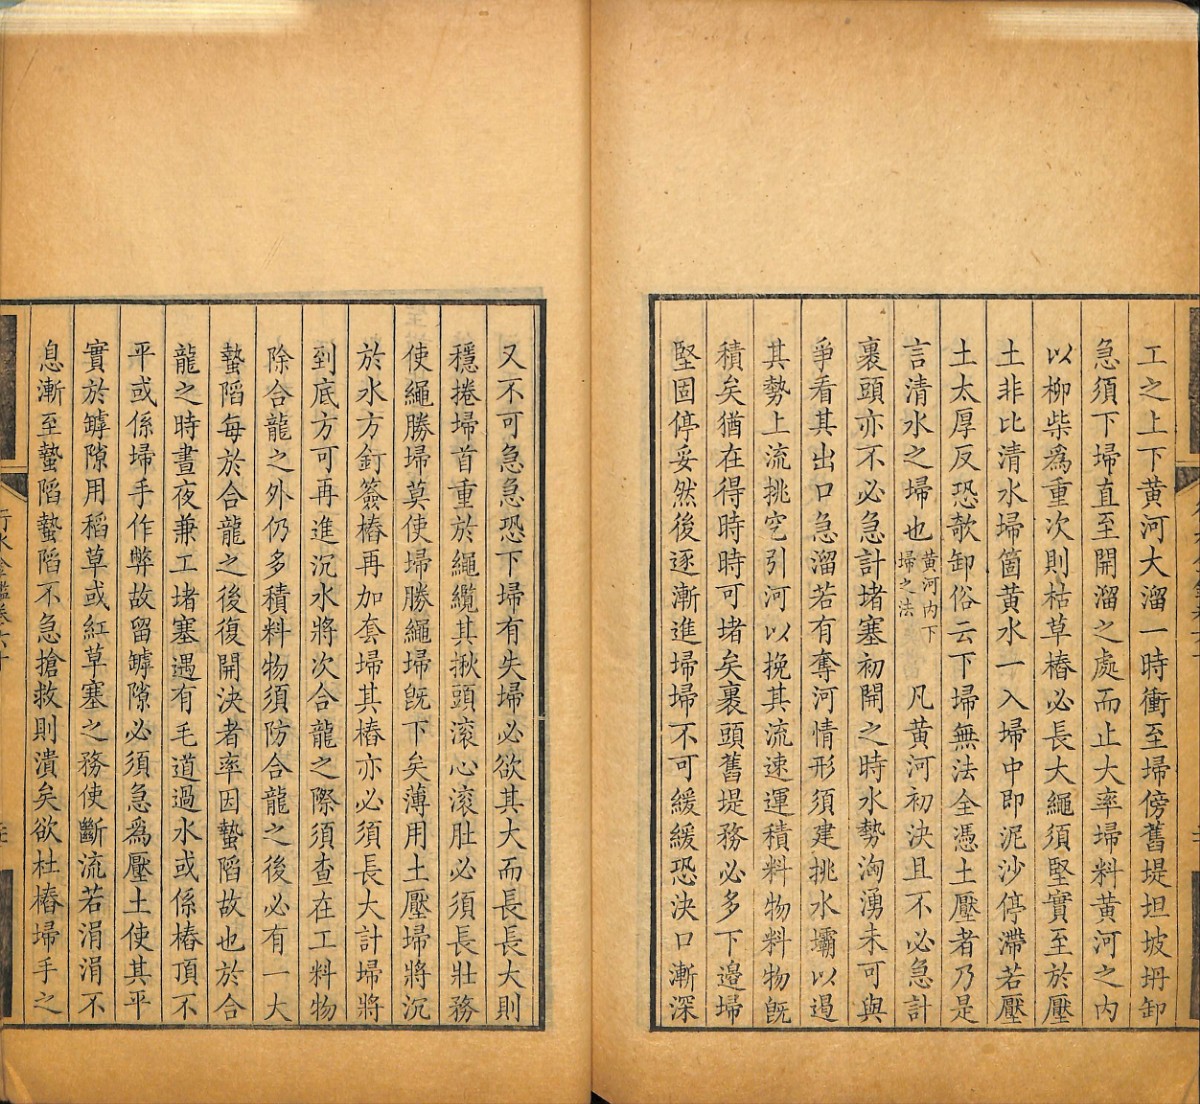 工之上下黃河大溜一時衝至埽傍舊堤坦坡坍卸
急須下埽直至開溜之處而止大率埽料黃河之內
以柳柴爲重次則枯草樁必長大繩須堅實至於壓
土非比清水埽箇黃水一入埽中即泥沙停滯若壓
土太厚反恐欹卸俗云下埽無法全憑土壓者乃是
言清水之埽也黃河內下埽之法 凡黃河初決且不必急計
裹頭亦不必急計堵塞初開之時水勢洶湧未可與
爭看其出口急溜若有奪河情形須建挑水壩以過
其勢上流挑空引河以挽其流速運積料物料物既
積矣猶在得時時可堵矣裹頭舊堤務必多下邉埽
堅固停妥然後逐漸進埽埽不可緩緩恐決口漸深
又不可急急恐下埽有失埽必欲其大而長長大則
穩捲埽首重於繩纜其揪頭滚心滚肚必須長壯務
使繩勝埽莫使埽勝繩埽旣下矣薄用土壓埽將沉
於水方釘簽樁再加套埽其樁亦必須長大計埽將
到底方可再進沉水將次合龍之際須查在工料物
除合龍之外仍多積料物須防合龍之後必有一大
蟄陷每於合龍之後復開決者率因蟄陷故也於合
龍之時晝夜兼工堵塞遇有毛道過水或係樁頂不
平或係埽手作弊故留罅隙必須急爲壓土使其平
實於罅隙用稻草或紅草塞之務使斷流若涓涓不
息漸至蟄陷蟄陷不急搶救則潰矣欲杜樁埽手之
行水金鑑卷六十